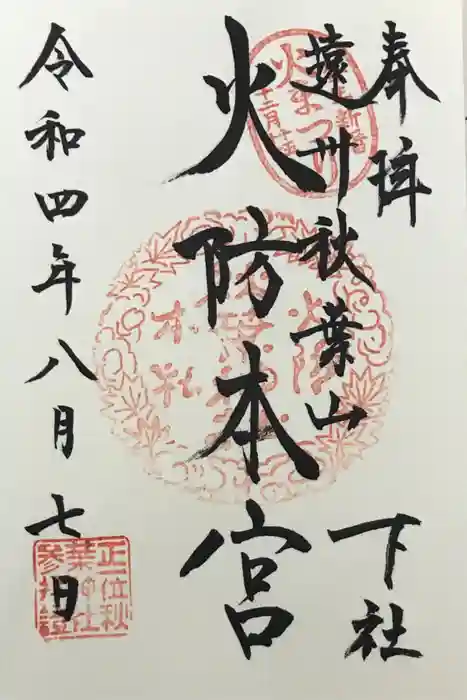 奉拝
下社
遠州秋葉山
火防本宮
令和四年八月七日
火まつり
正一位秋
葉神社
参拝證